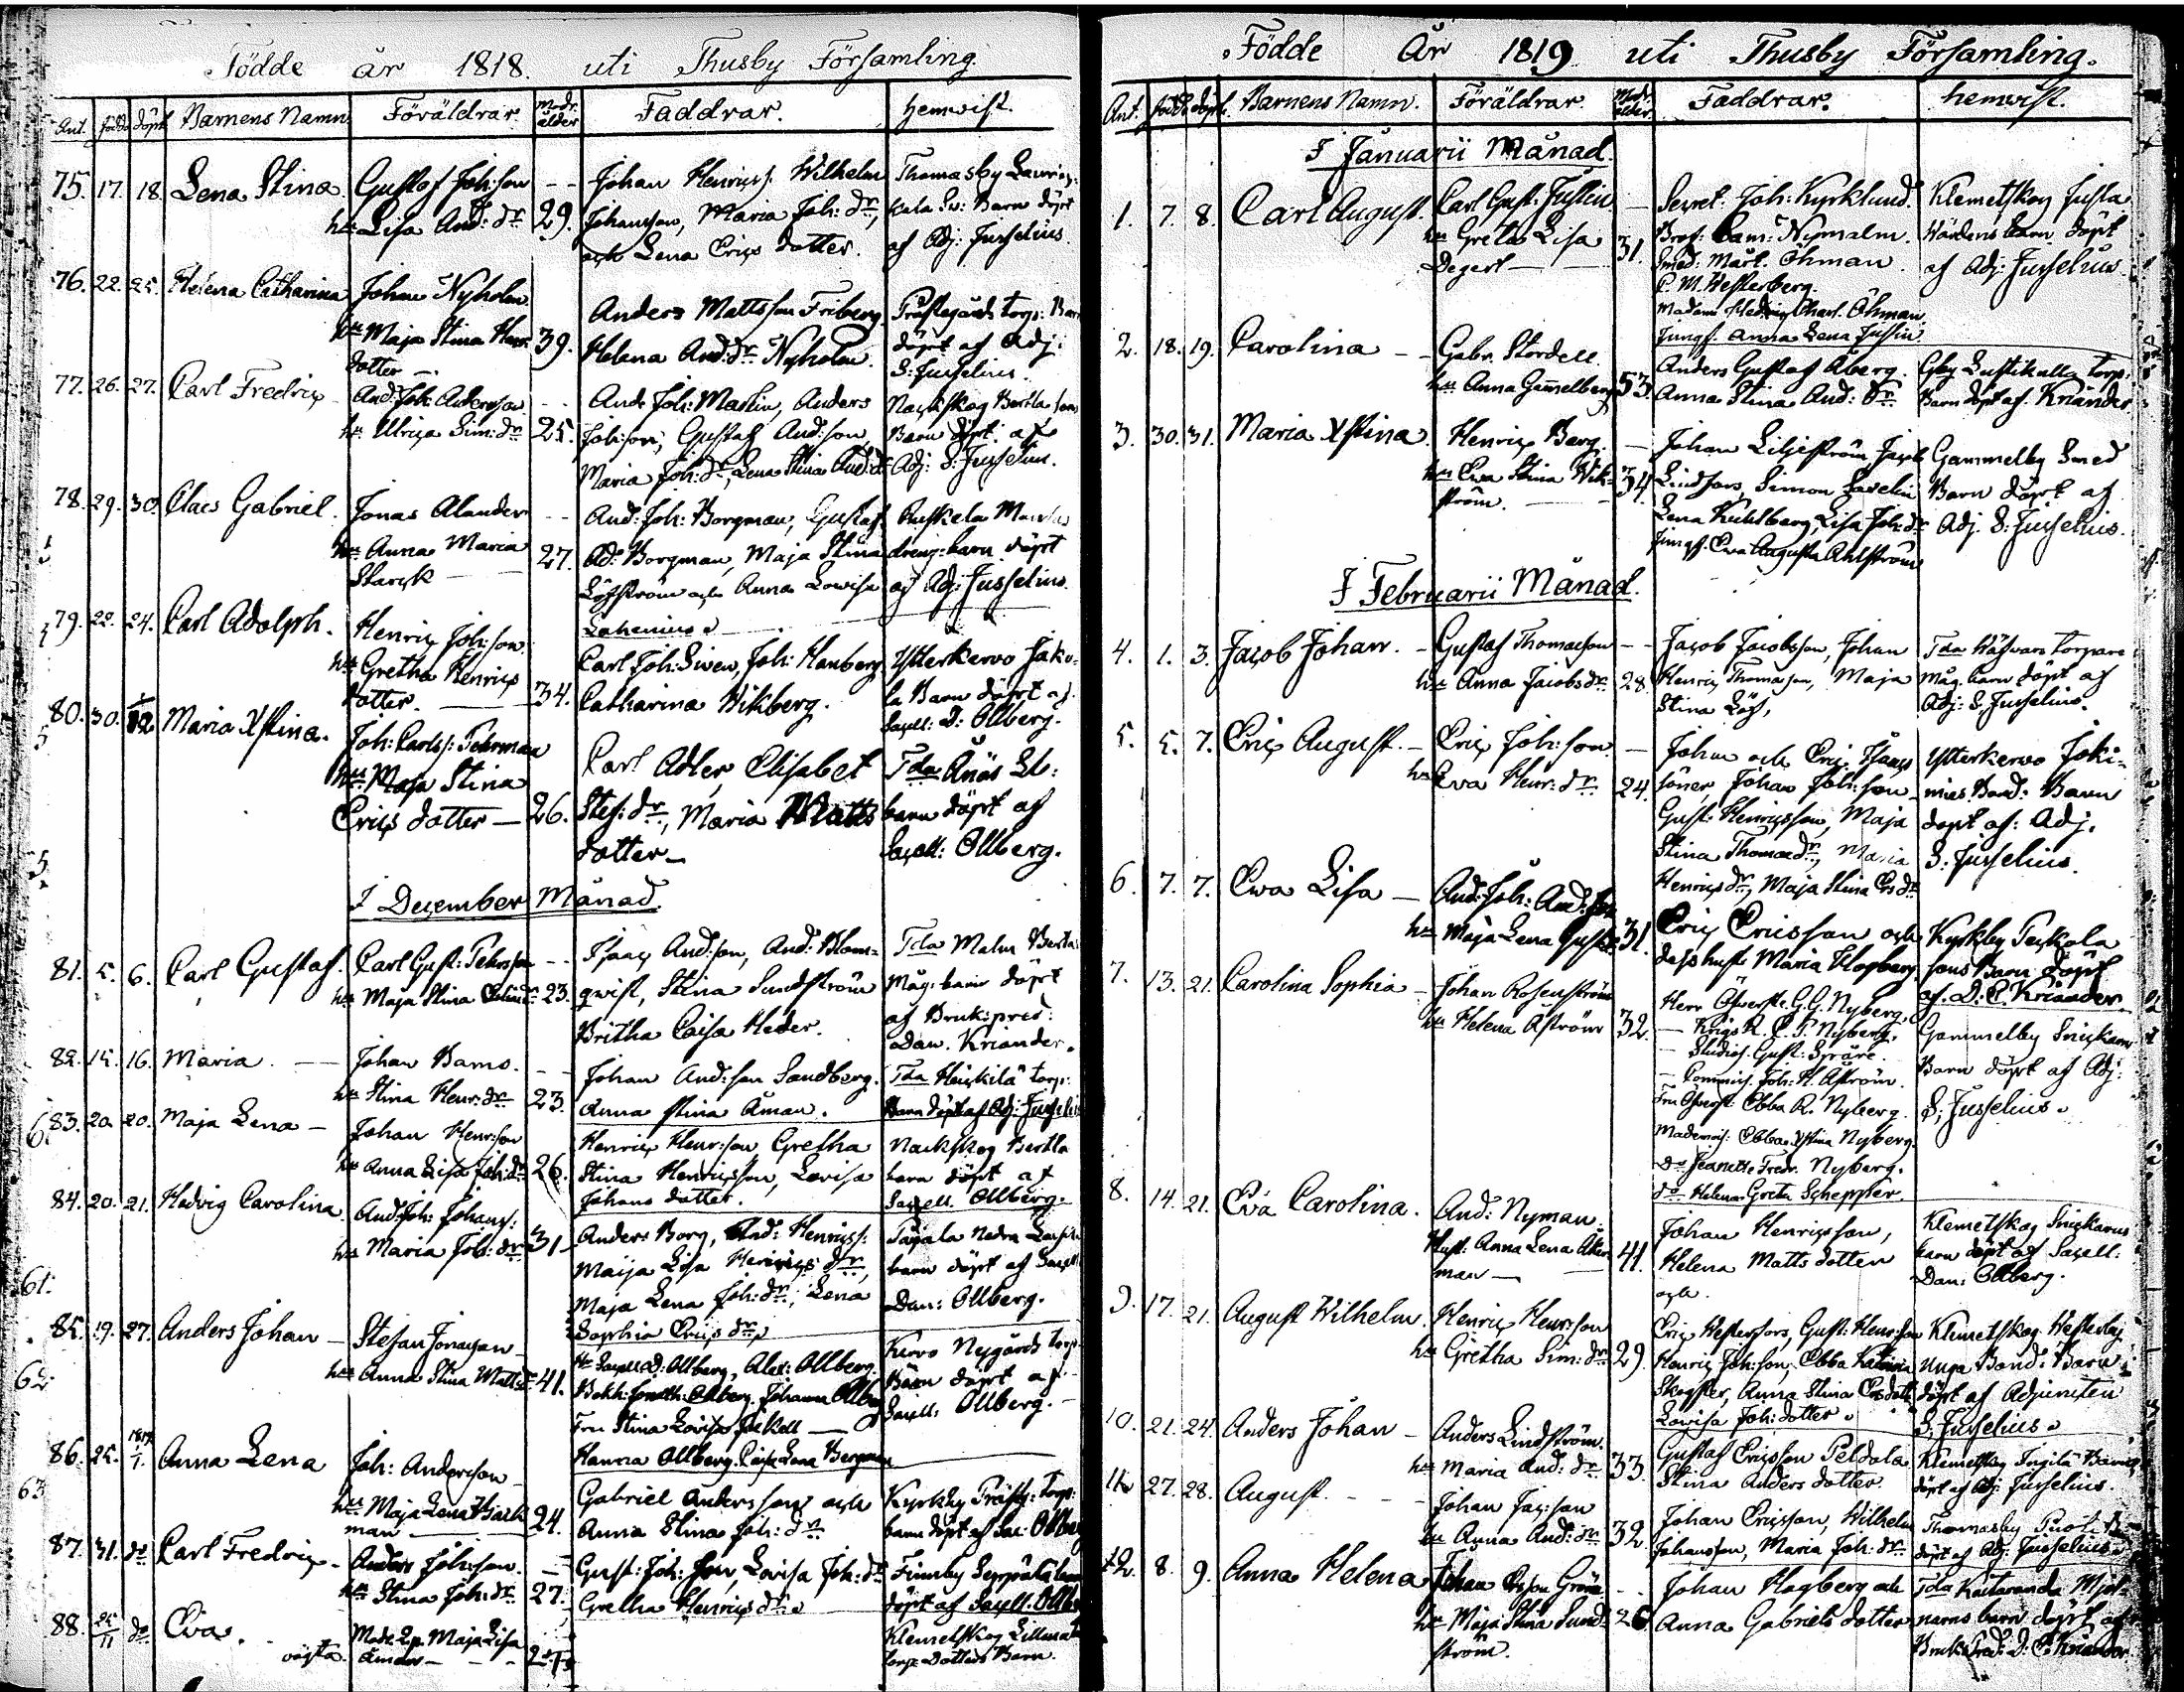 Födde år 1818. uti Thusby Församling.
Ant. född döpt Barnens Namn Föräldrar. Modr. ålder Faddrar. hemvist.
75. 17. 18. Lena Stina. Gustaf Joh:son -- Johan Henricss. Wilhelm Thomasby
hu Lisa And: dr 29. Johansson, Maria Joh: dr, Barn döpt
och Lena Erics dotter. af Adj: Jusselius.
76. 22. 25. Helena Catharina Johan Nyholm
Anders Mattsson Friberg. Prästegårds torp: Barn
hu Maja Stina Henr. 39. Helena And: dr Nyholm. döpt af Adj:
dotter — S: Jusselius.
77. 26. 27. Carl Fredric And: Joh: Andersson -- And: Joh: Martin, Anders Nackskog Bertla sons
hu Ulrica Sim: dr 25. Joh:son, Gustaf And:son, Barn döpt af
Maria Joh: dr, Lena Stina And: dr Adj: S: Jusselius.
78. 29. 30. Claes Gabriel. Jonas Alander -- And: Joh: Borgman, Gustaf Ruskela
hu Anna Maria 27. Ad: Borgman, Maja Stina dreng: barn döpt
Starck — Löfström och Anna Lowisa af Adj: Jusselius.
79. 22. 24. Carl Adolph. Henric Joh:son.
hu Gretha Henrics Carl Joh: Siven, Joh: Hanberg Ytterkervo Jako-
dotter. — 34. Catharina Wikberg. la Barn döpt af
Sacell: D: Ollberg.
80. 30. Maria Xstina. Joh: Carlss: Fehrman
hu Maja Stina Carl Adler, Elisabet Tda Ånäs
Erics dotter — 26. Stef: dr, Maria Matts barn döpt af
dotter — Sacell: Ollberg.
I December Månad.
81. 5. 6. Carl Gustaf. Carl Gust: Pehrsson -- Isaac And:son, And: Blom- Tda Malm Bertla
hu Maja Stina 23. qwist, Stina Sundström Måg: barn döpt
Britha Caisa Heder. af Bruk:pred:
Dan. Kriander.
82. 15. 16. Maria. — Johan Bams. -- Johan And:son Sandberg. Tda Heickilä torp:
hu Stina Henr: dr 23. Anna Stina Åman. Barn döpt af Adj: Jusselius
83. 20. 20. Maja Lena — Johan Henr:son Henric Henr:son, Gretha Nackskog Bertla
hu Anna Lisa Joh: dr 26. Stina Henricsson, Lovisa barn döpt af
Johans dotter. Sacell. Ollberg.
84. 20. 21. Hedvig Carolina. And: Joh: Johans:
hu Maria Joh: dr 31. Anders Borg, And: Henricss: Nedra
Maija Lisa Henrics dr, barn döpt af Sacell
Maja Lena Joh: dr, Lena Dan: Ollberg.
Sophia Erics dr
85. 19. 27. Anders Johan — Stefan Jonasson — Kervo Nygårds torp.
hu Anna Stina Matts dr 41. Hr Sacell. D: Ollberg, Alex: Ollberg Barn döpt af
Johanna Ollberg Sacell: Ollberg.
Fru Stina Lovisa —
Hanna Ollberg, Caisa Lena Bergman
86. 25. 1819 1/1. Anna Lena Joh: Andersson
hu Maja Lena 24. Gabriel Andersson och Kyrkby Prästg: torp:
man — Anna Stina Joh: dr barn döpt af Sac: Ollberg
87. 31. do Carl Fredric — Anders Joh:son. — Gust: Joh: son, Lovisa Joh: dr Finnby Seppälä barn
hu Stina Joh: dr 27. Gretha Henrics dr döpt af Sacell. Ollberg
88. do Eva. Maja Lisa Klemetskog
oägta. Åman — Dotters Barn.
Födde År 1819 uti Thusby Församling.
Ant. född döpt. Barnens Namn. Föräldrar. Modr. ålder. Faddrar. hemvist.
I Januarii Månad.
1. 7. 8. Carl August. Carl Gust: Justin — Secret. Joh: Kyrklund. Klemetskog
hu Greta Lisa 31. Prof: Cam: Nymalm. barn döpt
Degert — Smed: Mårt. Öhman af Adj: Jusselius
C. M. Westerberg.
Madam Hedvig Charl. Öhman
Jungf. Anna Lena Justin.
2. 18. 19. Carolina — Gabr. Stordell Anders Gustaf Åberg. Gby Lustikulla torp:
hu Anna Gamelberg 53. Anna Stina And: dr Barn döpt af Kriander
3. 30. 31. Maria Xstina. Henric Berg. — Johan Liljeström Jacob Gammelby Smed
hu Eva Stina Wik- 34. Lindfors, Simon Savelin Barn döpt af
ström. — Lena Kuhlberg, Lisa Joh: dr Adj. S: Jusselius.
Jungf. Eva Augusta Ahlström
I Februarii Månad.
4. 1. 3. Jacob Johan. — Gustaf Thomasson -- Jacob Jacobsson, Johan Tda torpare
hu Anna Jacobs dr 28. Henric Thomasson, Maja måg. barn döpt af
Stina Löf, Adj: S. Jusselius.
5. 5. 7. Eric August. — Eric Joh:son — Johan och Eric Isaacs Ytterkervo Joki-
hu Eva Henr: dr 24. söner Johan Joh:son mies Bond: Barn
Gust: Henricsson, Maja döpt af: Adj.
Stina Thomas dr, Maria S: Jusselius.
Henrics dr, Maja Stina Ers dr
6. 7. 7. Ewa Lisa — And: Joh: And:son
hu Maja Lena Gust: dr 31. Eric Ericsson och Kyrkby Peckola
dess hust: Maria Hagberg sons Barn döpt
af. D: E. Kriander
7. 13. 21. Carolina Sophia — Johan Rosenström Herr Öfwerste G. G. Nyberg, Gammelby Snickare
hu Helena Åström 32. — Krigs R. C. P. Nyberg. Barn döpt af Adj:
— Studios. Gust: Spräre. S: Jusselius.
— Commis. Joh: H. Åström.
Fru Öfverst. Ebba R. Nyberg.
Mademois: Ebba Xstina Nyberg.
do Jeanette Fredr. Nyberg.
do Helena Greta Scheppler.
8. 14. 21. Eva Carolina. And: Nyman. Johan Henricsson, Klemetskog Snickarns
Hust: Anna Lena Åker- 41. Helena Matts dotter barn döpt af Sacell.
man — och. Dan: Ollberg.
9. 17. 21. August Wilhelm. Henric Henr:son Eric Westerfors, Gust: Henr:son Klemetskog Westerby
hu Gretha Sim: dr 29. Henric Joh:son, Ebba Katrina unga Bond: Barn
Skogster, Anna Stina Ers dotter döpt af Adjuncten
Lovisa Joh: dotter. S: Jusselius.
10. 21. 24. Anders Johan — Anders Lindström. Gustaf Ericsson Peldola Klemetskog Ingilä Barn
hu Maria And: dr 33. Stina Anders dotter. döpt af Adj: Jusselius.
11. 27. 28. August. — Johan Jac:son Johan Ericsson, Wilhelm Thomasby
hu Anna And: dr 32. Johansson, Maria Joh: dr döpt af Adj: Jusselius
12. 8. 9. Anna Helena Johan Ersson Grön -- Johan Hagberg och Tda Kaitaranda Mjöl-
hu Maja Stina Sund- 26. Anna Gabriels dotter narns barn döpt af
ström. Bruks Pred: D: E: Kriander.